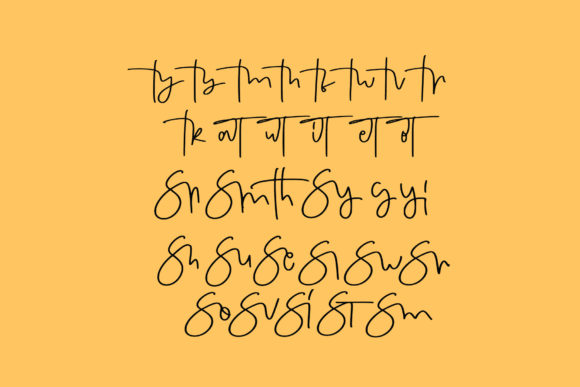 ty ty tm th ts tw tv tr
tk at ut it et ot
Sn Smth Sy gyi
Sh Su Se Si Sw Sr
So Sv Si St Sm